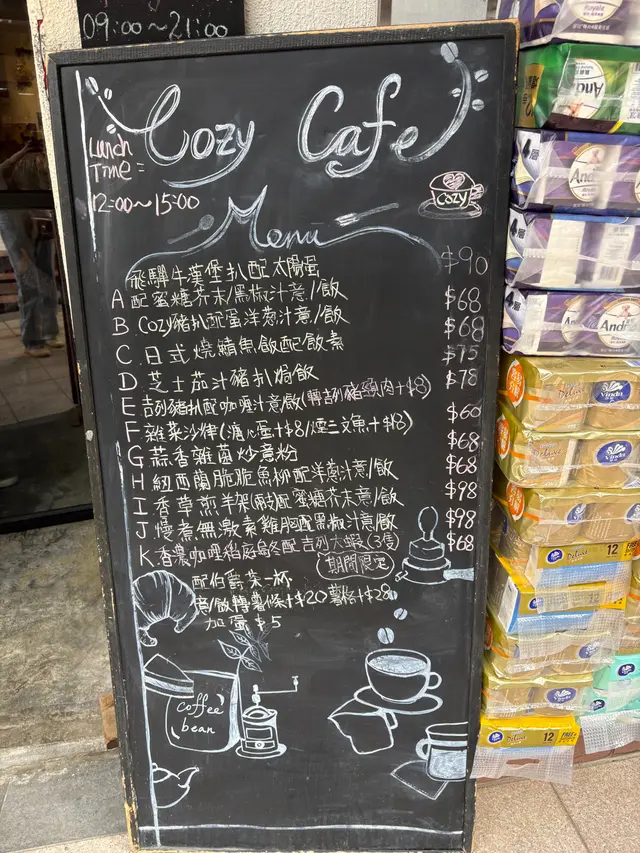 09:00~21:00
Cozy Cafe
Lunch
Time =
12:00~15:00
cozy
Menu
飛驒牛漢堡扒配太陽蛋 $90
A 配蜜糖芥末/黑椒汁意/飯 $68
B Cozy豬扒配蛋洋蔥汁意/飯 $68
C 日式燒鯖魚飯配飯素 $75
D 芝士茄汁豬扒焗飯 $78
E 吉列豬扒配咖喱汁意/飯(轉吉列豬頸肉+$8) $60
F 雜菜沙律(溏心蛋+$8/煙三文魚+$18) $68
G 蒜香雜菌炒意粉 $68
H 紐西蘭脆脆魚柳配洋蔥汁意/飯 $98
I 香草煎羊架(兩)配蜜糖芥末意/飯 $98
J 慢煮無激素雞胸配黑椒汁意/飯 $68
K 香濃咖哩稻庭烏冬配吉列大蝦(3隻)
期間限定
配伯爵茶一杯
意/飯轉薯條+$20 薯格+$28
加蛋$5
coffee
bean
4層
Andrex
Vinda
Deluxe
12